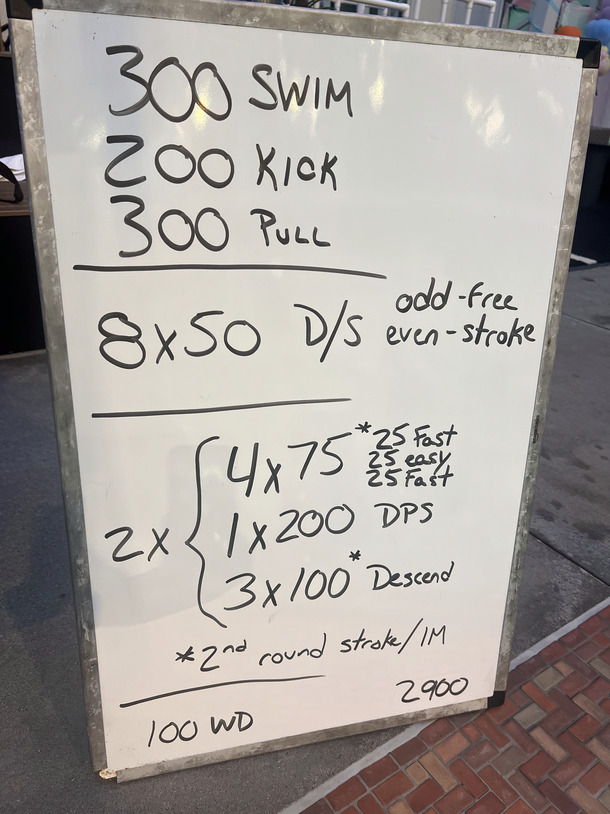 300 SWIM
200 KICK
300 PULL
8x50 D/S odd-free
even-stroke
2x { 4x75 *25 Fast
25 easy
25 Fast
1x200 DPS
3x100* Descend
*2nd round stroke/IM
2900
100 WD